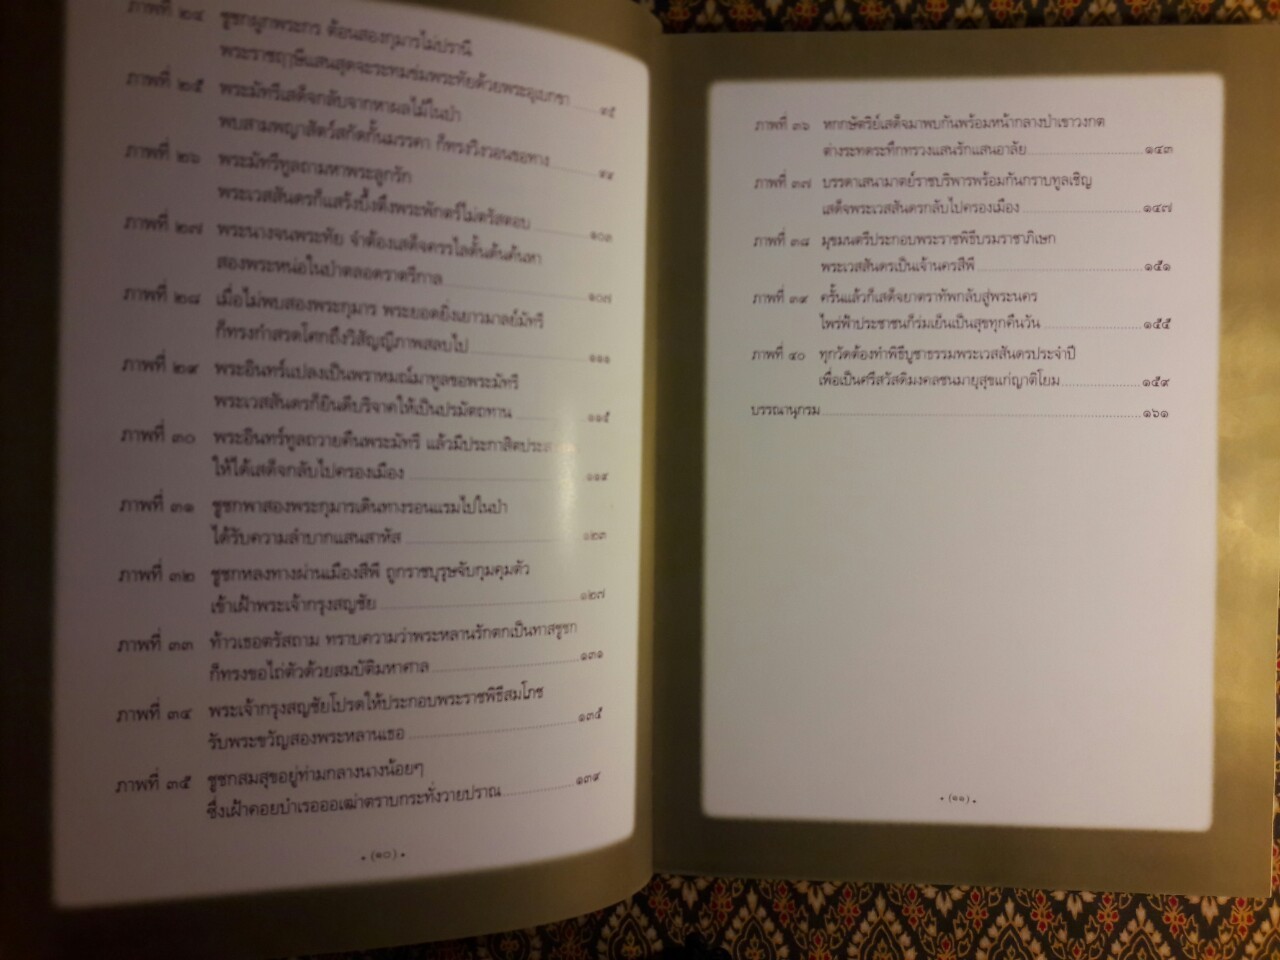 ภาพที่ ๒๔ ชูชกผูกพระกร ต้อนสองกุมารไม่ปรานี
พระราชฤๅษีแสนสุดจะระทมข่มพระทัยด้วยพระอุเบกขา ๙๕
ภาพที่ ๒๕ พระมัทรีเสด็จกลับจากหาผลไม้ในป่า
พบสามพญาสัตว์สกัดกั้นมรรคา ก็ทรงวิงวอนขอทาง ๙๙
ภาพที่ ๒๖ พระมัทรีทูลถามหาพระลูกรัก
พระเวสสันดรก็แสร้งบึ้งตึงพระพักตร์ไม่ตรัสตอบ ๑๐๓
ภาพที่ ๒๗ พระนางจนพระทัย จำต้องเสด็จครรไลดั้นด้นค้นหา
สองพระหน่อในป่าตลอดราตรีกาล ๑๐๗
ภาพที่ ๒๘ เมื่อไม่พบสองพระกุมาร พระยอดยิ่งเยาวมาลย์มัทรี
ก็ทรงกำสรดโศกถึงวิสัญญีภาพสลบไป ๑๑๑
ภาพที่ ๒๙ พระอินทร์แปลงเป็นพราหมณ์มาทูลขอพระมัทรี
พระเวสสันดรก็ยินดีบริจาคให้เป็นปรมัตถทาน ๑๑๕
ภาพที่ ๓๐ พระอินทร์ทูลถวายคืนพระมัทรี แล้วมีประกาสิต
ให้ได้เสด็จกลับไปครองเมือง ๑๑๙
ภาพที่ ๓๑ ชูชกพาสองพระกุมารเดินทางรอนแรมไปในป่า
ได้รับความลำบากแสนสาหัส ๑๒๓
ภาพที่ ๓๒ ชูชกหลงทางผ่านเมืองสีพี ถูกราชบุรุษจับกุมคุมตัว
เข้าเฝ้าพระเจ้ากรุงสญชัย ๑๒๗
ภาพที่ ๓๓ ท้าวเธอตรัสถาม ทราบความว่าพระหลานรักตกเป็นทาสชูชก
ก็ทรงขอไถ่ตัวด้วยสมบัติมหาศาล ๑๓๑
ภาพที่ ๓๔ พระเจ้ากรุงสญชัยโปรดให้ประกอบพระราชพิธีสมโภช
รับพระขวัญสองพระหลานเธอ ๑๓๕
ภาพที่ ๓๕ ชูชกสมสุขอยู่ท่ามกลางนางน้อยๆ
ซึ่งเฝ้าคอยบำเรอออเฒ่าตราบกระทั่งวายปราณ ๑๓๙
• (๑๐) •
ภาพที่ ๓๖ หกกษัตริย์เสด็จมาพบกันพร้อมหน้ากลางป่าเขาวงกต
ต่างระทดระทึกทรวงแสนรักแสนอาลัย ๑๔๓
ภาพที่ ๓๗ บรรดาเสนามาตย์ราชบริพารพร้อมกันกราบทูลเชิญ
เสด็จพระเวสสันดรกลับไปครองเมือง ๑๔๗
ภาพที่ ๓๘ มุขมนตรีประกอบพระราชพิธีบรมราชาภิเษก
พระเวสสันดรเป็นเจ้านครสีพี ๑๕๑
ภาพที่ ๓๙ ครั้นแล้วก็เสด็จยาตราทัพกลับสู่พระนคร
ไพร่ฟ้าประชาชนก็ร่มเย็นเป็นสุขทุกคืนวัน ๑๕๕
ภาพที่ ๔๐ ทุกวัดต้องทำพิธีบูชาธรรมพระเวสสันดรประจำปี
เพื่อเป็นศรีสวัสดิมงคลชนมายุสุขแก่ญาติโยม ๑๕๙
บรรณานุกรม ๑๖๑
• (๑๑) •